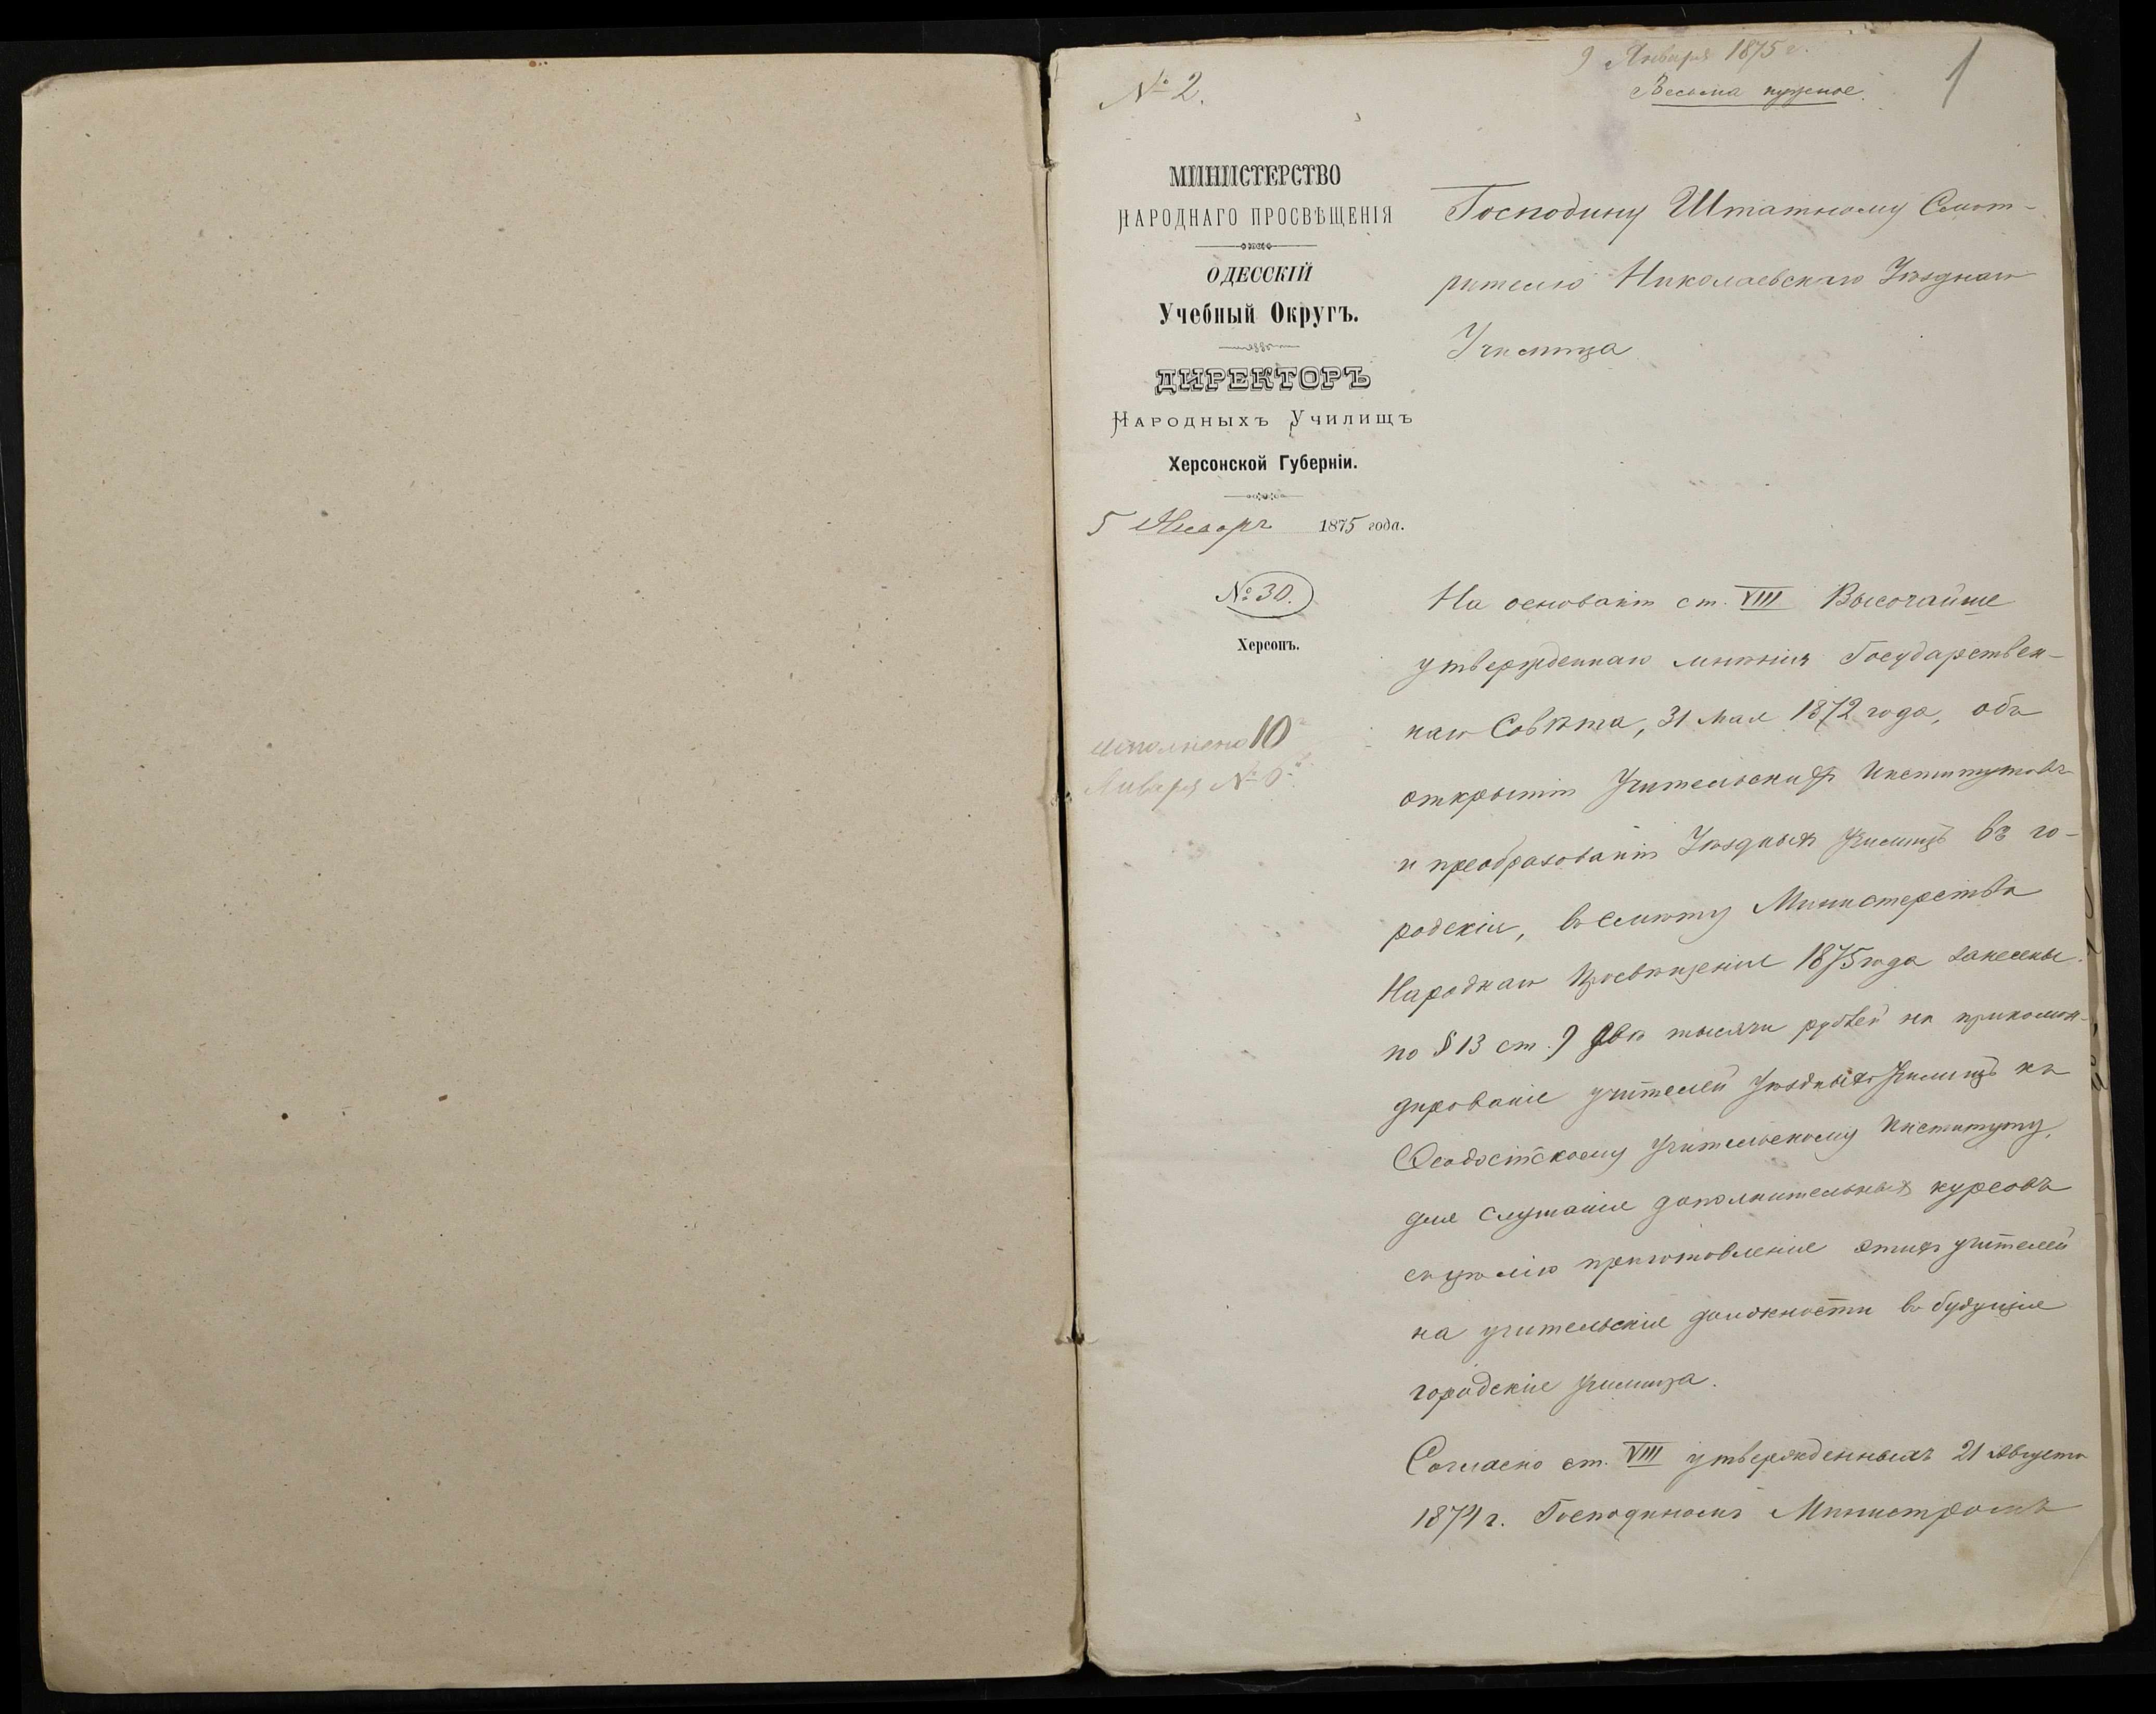 № 2.
9 Января 1875 г.
Весьма нужное.
1
МИНИСТЕРСТВО
НАРОДНАГО ПРОСВѢЩЕНІЯ
ОДЕССКІЙ
Учебный Округъ.
ДИРЕКТОРЪ
Народныхъ Училищъ
Херсонской Губерніи.
5 Января 1875 года.
№ 30.
Херсонъ.
исполнено 10
Января №
Господину Штатному Смот-
рителю Николаевскаго Уѣзднаго
Училища
На основаніи ст. VIII Высочайше
утвержденнаго мнѣнія Государствен-
наго Совѣта, 31 Мая 1872 года, объ
открытіи Учительскихъ Институтовъ
и преобразованіи Уѣздныхъ Училищъ въ го-
родскія, въ смѣту Министерства
Народнаго Просвѣщенія 1875 года занесены
по § 13 ст. 9 двѣ тысячи рублей на прикоман-
дированіе учителей Уѣздныхъ Училищъ къ
Ѳеодосійскому Учительскому Институту,
для слушанія дополнительныхъ курсовъ
съ цѣлію приготовленія этихъ учителей
на учительскія должности въ будущія
городскія училища.
Согласно ст. VIII утвержденныхъ 21 Августа
1874 г. Господиномъ Министромъ